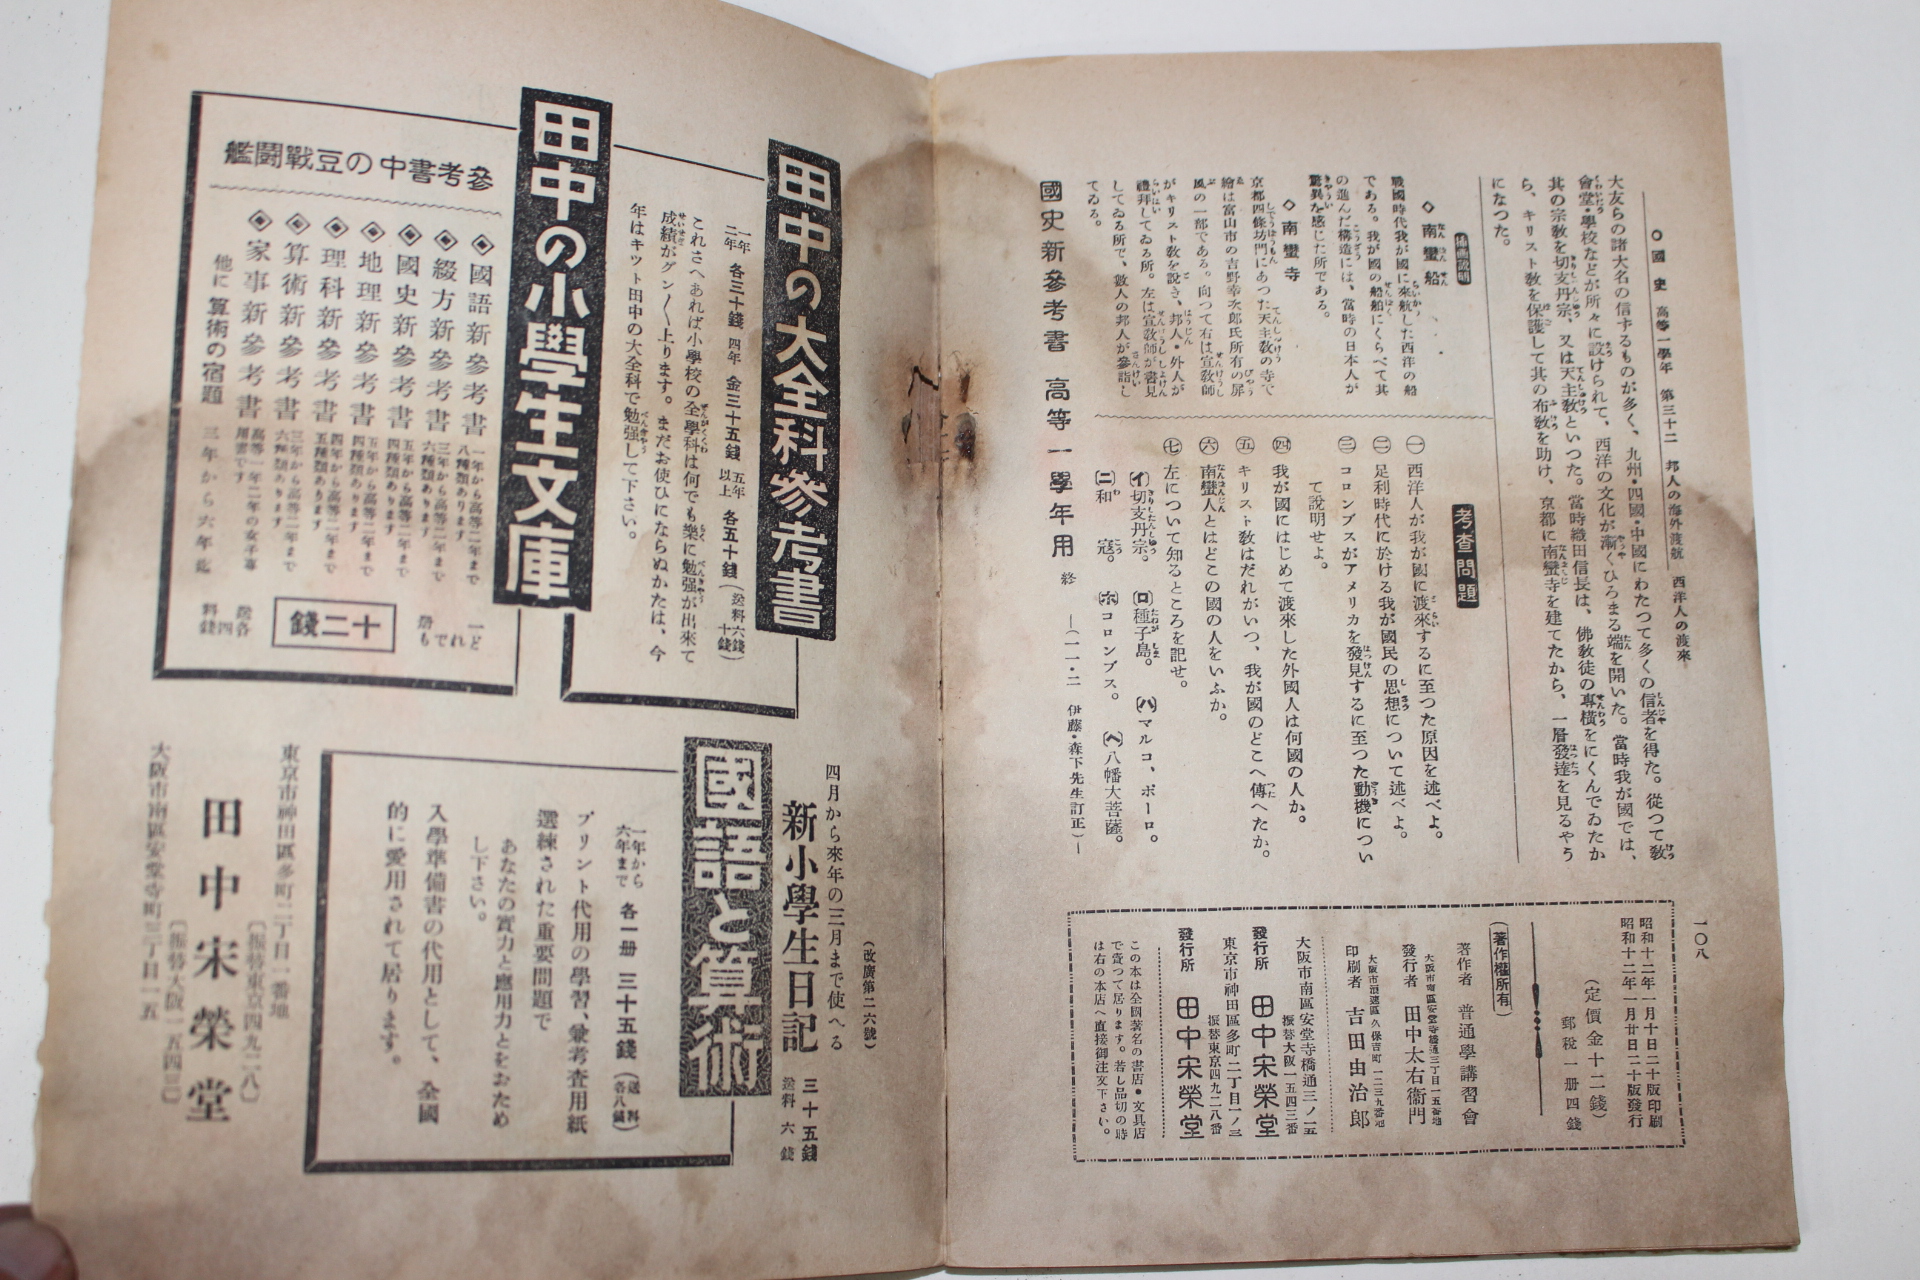 一〇八
○國史 高等一學年 第三十二 邦人の海外渡航 西洋人の渡來
大友らの諸大名の信ずるものが多く、九州・四國・中國にわたつて多くの信者を得た。從つて教
會堂・學校などが所々に設けられて、西洋の文化が漸くひろまる端を開いた。當時我が國では、
其の宗教を切支丹宗、又は天主教といつた。當時織田信長は、佛教徒の專横をにくんでゐたか
ら、キリスト教を保護して其の布教を助け、京都に南蠻寺を建てたから、一層發達を見るやう
になつた。
挿畫說明
◇南蠻船
戰國時代我が國に來航した西洋の船
である。我が國の船舶にくらべて其
の進んだ構造には、當時の日本人が
驚異を感じた所である。
◇南蠻寺
京都四條坊門にあつた天主教の寺で
繪は富山市の吉野幸次郎氏所有の屏
風の一部である。向つて右は宣教師
がキリスト教を說き、邦人・外人が
禮拜してゐる所。左は宣教師が書見
してゐる所で、數人の邦人が參詣し
てゐる。
考査問題
㊀ 西洋人が我が國に渡來するに至つた原因を述べよ。
㊁ 足利時代に於ける我が國民の思想について述べよ。
㊂ コロンブスがアメリカを發見するに至つた動機につい
て說明せよ。
㊃ 我が國にはじめて渡來した外國人は何國の人か。
㊄ キリスト教はだれがいつ、我が國のどこへ傳へたか。
㊅ 南蠻人とはどこの國の人をいふか。
㊆ 左について知るところを記せ。
(イ)切支丹宗。 (ロ)種子島。 (ハ)マルコ、ポーロ。
(ニ)和寇。 (ホ)コロンブス。 (ヘ)八幡大菩薩。
國史新參考書 高等一學年用 終 ―(一一・二 伊藤・森下先生訂正)―
昭和十二年一月十日二十版印刷
昭和十二年一月廿日二十版發行
(定價金十二錢)
郵稅一册四錢
(著作權所有)
著作者 普通學講習會
大阪市南區安堂寺橋通三丁目一五番地
發行者 田中太右衞門
大阪市浪速區久保吉町一二三九番地
印刷者 吉田由治郎
大阪市南區安堂寺橋通三ノ一五
振替大阪一五四三番
發行所 田中宋榮堂
東京市神田區多町二丁目一ノ三
振替東京四九二八番
發行所 田中宋榮堂
この本は全國著名の書店・文具店
で賣つて居ります。若し品切の時
は右の本店へ直接御注文下さい。
田中の大全科參考書
一年
二年
各三十錢 四年 金三十五錢 五年以上 各五十錢(送料六錢 十錢)
これさへあれば小學校の全學科は何でも樂に勉强が出來て
成績がグン〱上ります。まだお使ひにならぬかたは、今
年はキット田中の大全科で勉强して下さい。
田中の小學生文庫
參考書中の豆戰鬪艦
國語新參考書 一年から高等二年まで八種類あります
綴方新參考書 三年から高等二年まで六種類あります
國史新參考書 五年から高等二年まで四種類あります
地理新參考書 五年から高等二年まで四種類あります
理科新參考書 四年から高等二年まで五種類あります
算術新參考書 三年から高等二年まで六種類あります
家事新參考書 高等一年二年の女子專用書です
他に 算術の宿題 三年から六年迄
どれでも一册
十二錢
送料各四錢
(改廣第二六號)
四月から來年の三月まで使へる
新小學生日記 三十五錢
送料六錢
國語と算術
一年から
六年まで
各一册 三十五錢(送料各八錢)
プリント代用の學習、兼考査用紙
選練された重要問題で
あなたの實力と應用力とをおため
し下さい。
入學準備書の代用として、全國
的に愛用されて居ります。
東京市神田區多町二丁目一番地
(振替東京四九二八)
田中宋榮堂
(振替大阪一五四三)
大阪市南區安堂寺町三丁目一五